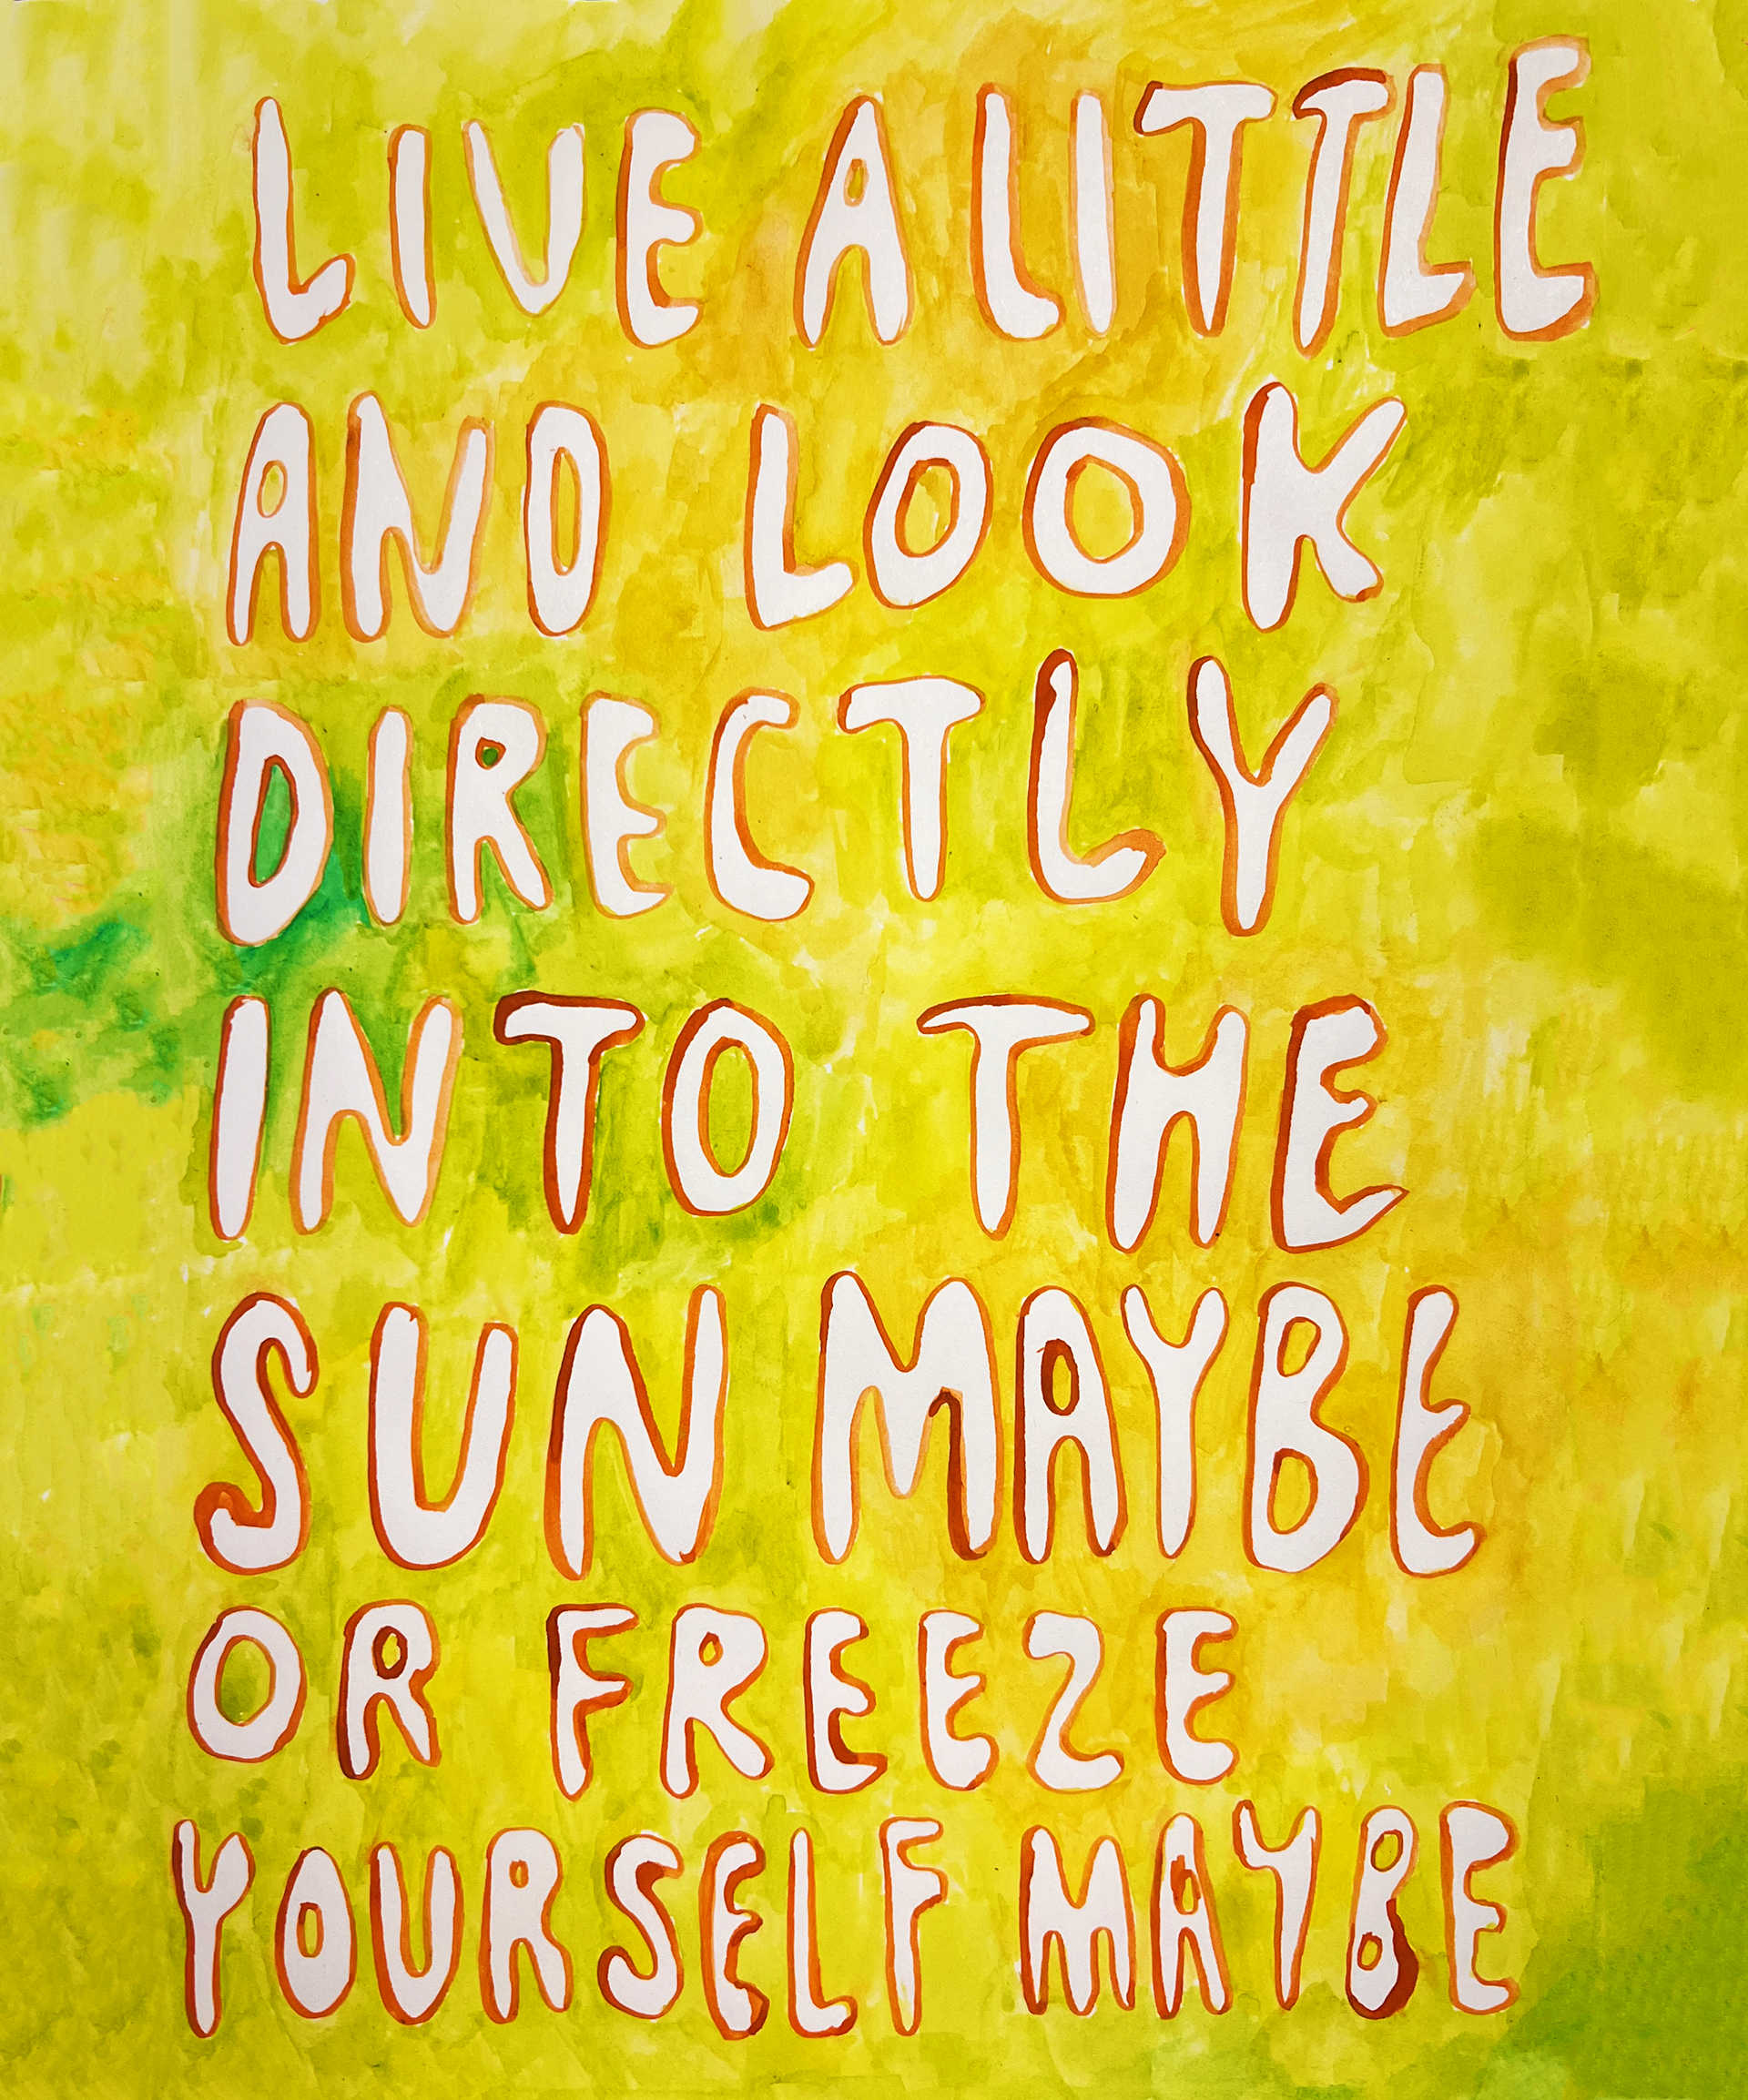 LIVE A LITTLE
AND LOOK
DIRECTLY
INTO THE
SUN MAYBE
OR FREEZE
YOURSELF MAYBE